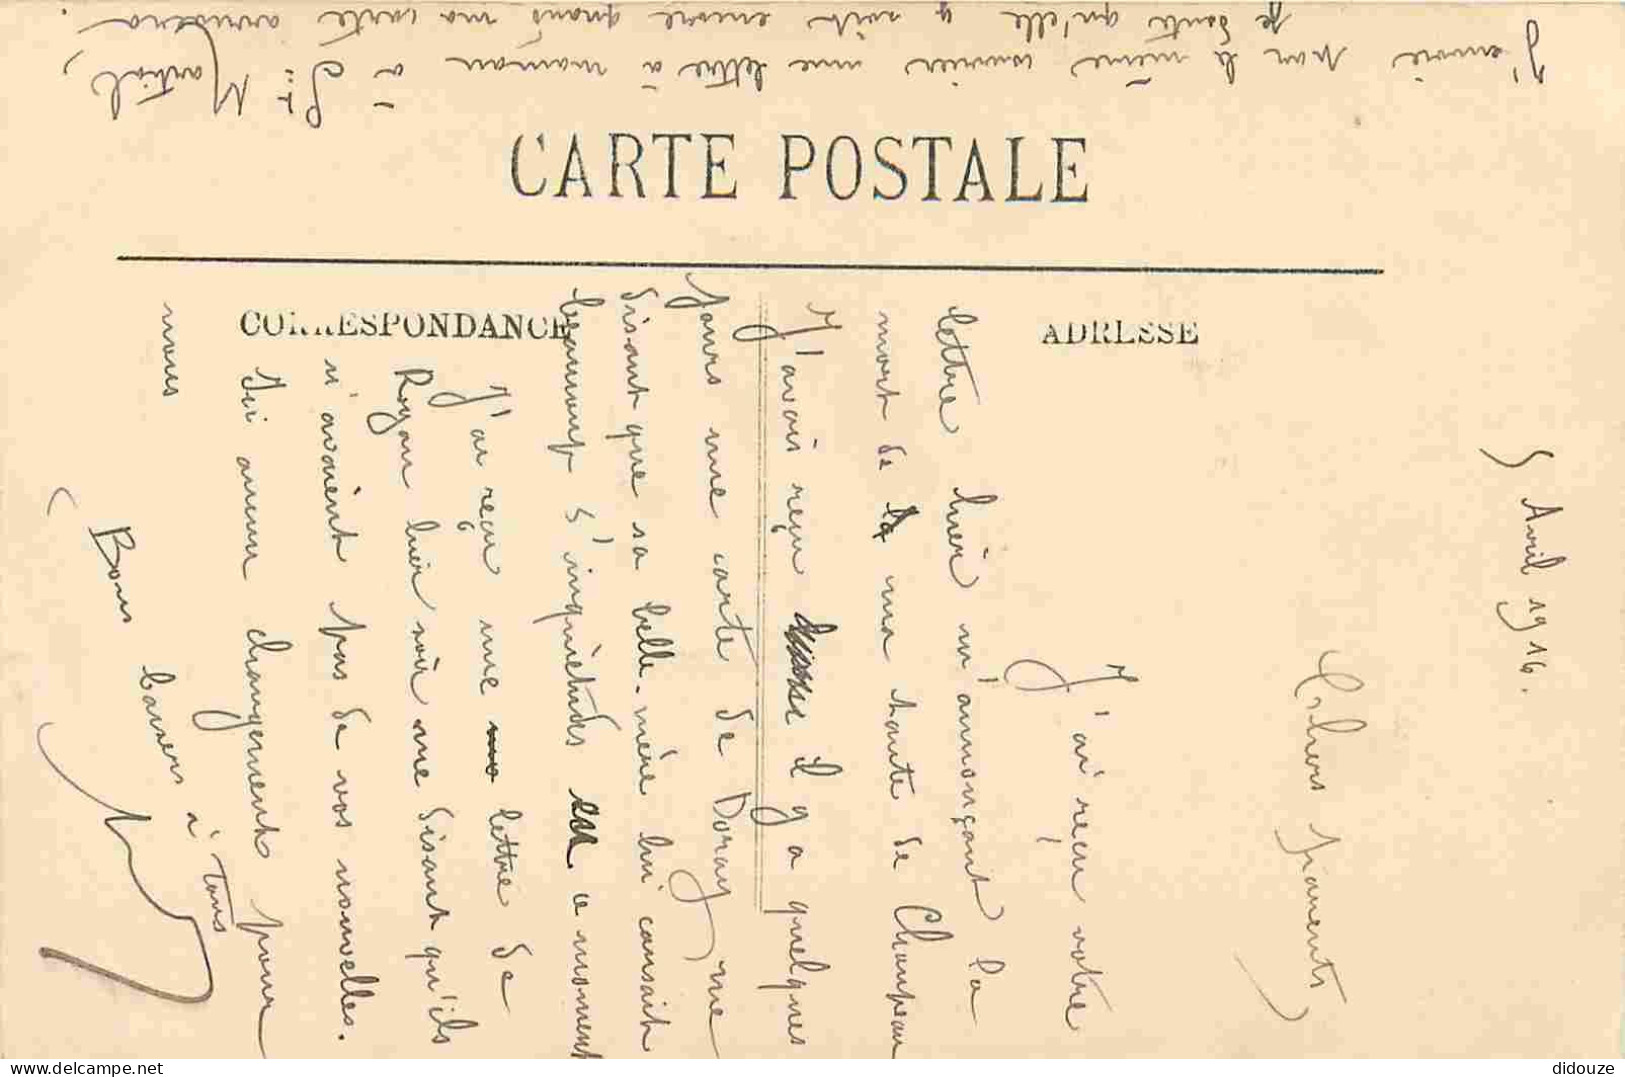 CARTE POSTALE
CORRESPONDANCE
ADRESSE
5 Avril 1916.
Chers parents
J'ai reçu votre
lettre hier m'annonçant la
mort de ma tante de Champeau
J'avais reçu il y a quelques
jours une carte de Doray me
disant que sa belle-mère lui causait
beaucoup d'inquiétudes ce moment
J'ai reçu une lettre de
Royan hier soir me disant qu'ils
n'avaient pas de vos nouvelles.
Ici aucun changement pour
nous
Bons baisers à Tous
J'envoie par le même courrier une lettre à maman à St Martial,
je doute qu'elle y soit encore quand ma carte arrivera.
didouze
delcampe.net